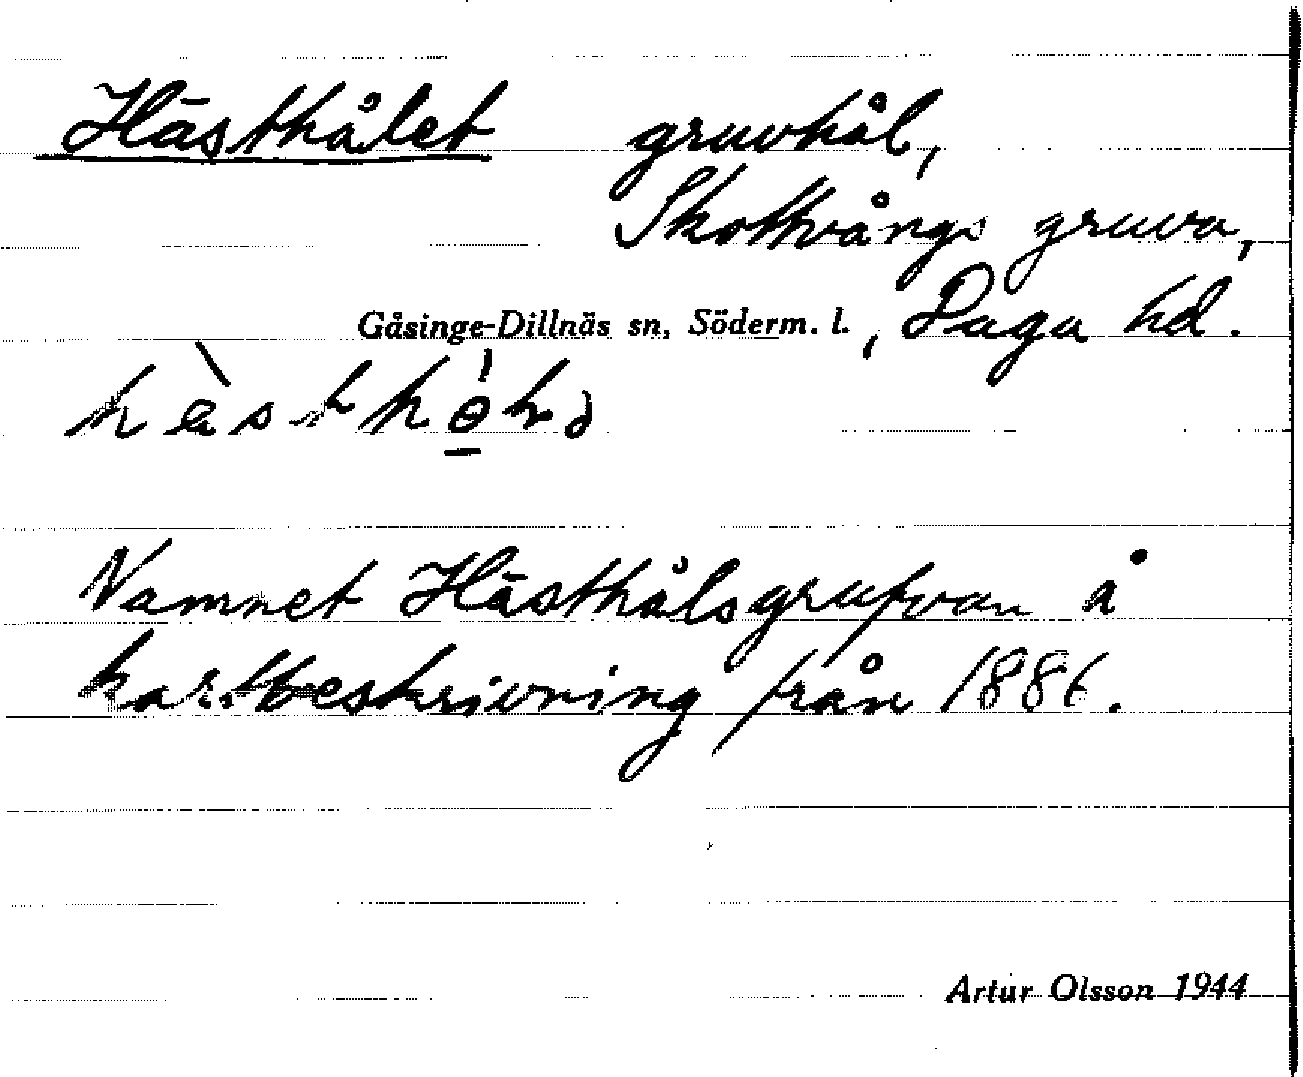 Hästhålet gruvhål,
Skottvångs gruva,
Gåsinge-Dillnäs sn, Söderm. l., Daga hd.
Namnet Hästhålsgrufvan å
kartbeskrivning från 1886.
Artur Olsson 1944